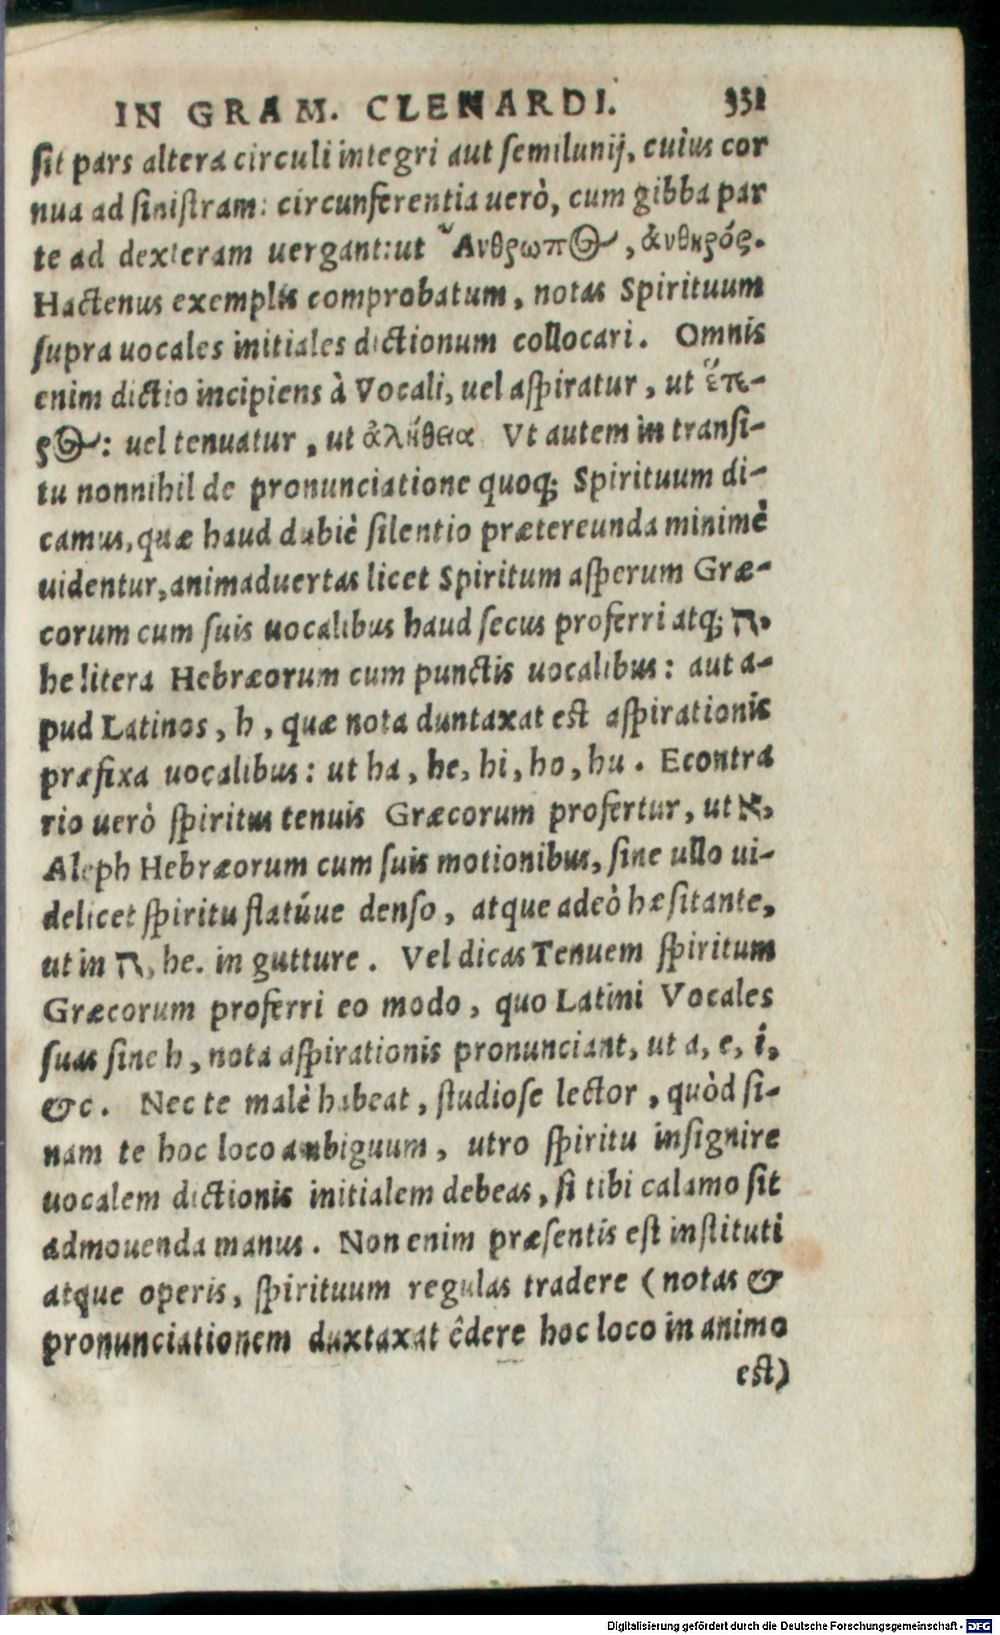 IN GRAM. CLENARDI. 351
ſit pars altera circuli integri aut ſemilunij, cuius cor
nua ad ſiniſtram: circunferentia uerò, cum gibba par
te ad dexteram uergant: ut Ἄνθρωπος, ἀνθηρός.
Hactenus exemplis comprobatum, notas Spirituum
ſupra uocales initiales dictionum collocari. Omnis
enim dictio incipiens à Vocali, uel aſpiratur, ut ἕτε-
ρος: uel tenuatur, ut ἀλήθεια Vt autem in tranſi-
tu nonnihil de pronunciatione quoq; Spirituum di-
camus, quæ haud dubiè ſilentio prætereunda minimè
uidentur, animaduertas licet Spiritum aſperum Græ-
corum cum ſuis uocalibus haud ſecus proferri atq; ה,
he litera Hebræorum cum punctis uocalibus: aut a-
pud Latinos, h, quæ nota duntaxat est aſpirationis
præfixa uocalibus: ut ha, he, hi, ho, hu. Econtra
rio uerò ſpiritus tenuis Græcorum profertur, ut א,
Aleph Hebræorum cum ſuis motionibus, ſine ullo ui-
delicet ſpiritu flatúue denſo, atque adeò hæſitante,
ut in ה, he. in gutture. Vel dicas Tenuem ſpiritum
Græcorum proferri eo modo, quo Latini Vocales
ſuas ſine h, nota aſpirationis pronunciant, ut a, e, i,
&c. Nec te malè habeat, ſtudioſe lector, quòd ſi-
nam te hoc loco ambiguum, utro ſpiritu inſignire
uocalem dictionis initialem debeas, ſi tibi calamo ſit
admouenda manus. Non enim præſentis eſt inſtituti
atque operis, ſpirituum regulas tradere (notas &
pronunciationem duxtaxat êdere hoc loco in animo
est)
Digitalisierung gefördert durch die Deutsche Forschungsgemeinschaft - DFG